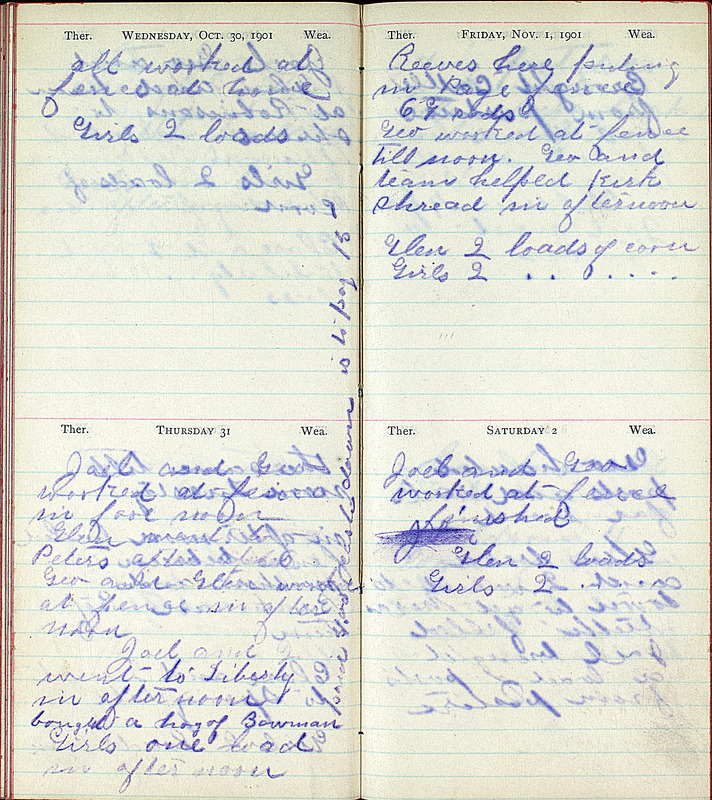 Ther. WEDNESDAY, OCT. 30, 1901 Wea.
all worked at
fence ad home
Girls 2 loads
THURSDAY 31
Ther. Wea.
Joel and Geo
worked at fence
in fore noon
Glen went
Peters after
Geo and Glen work
at fence in after
noon
Joel and I
went to Liberty
in after noon
bought a hog of Bowman
Girls one load
in after noon
paid 4.00 down is to pay 13
Ther. FRIDAY, NOV. 1, 1901 Wea.
Reeves here puting
in Page fence
67 rods
Geo worked at fence
till noon. Geo and
team helped Kirk
shread in afternoon
Glen 2 loads of corn
Girls 2 . . . . . .
Ther. SATURDAY 2 Wea.
Joel and Geo
worked at fence
finished
Glen 2 loads
Girls 2 . .